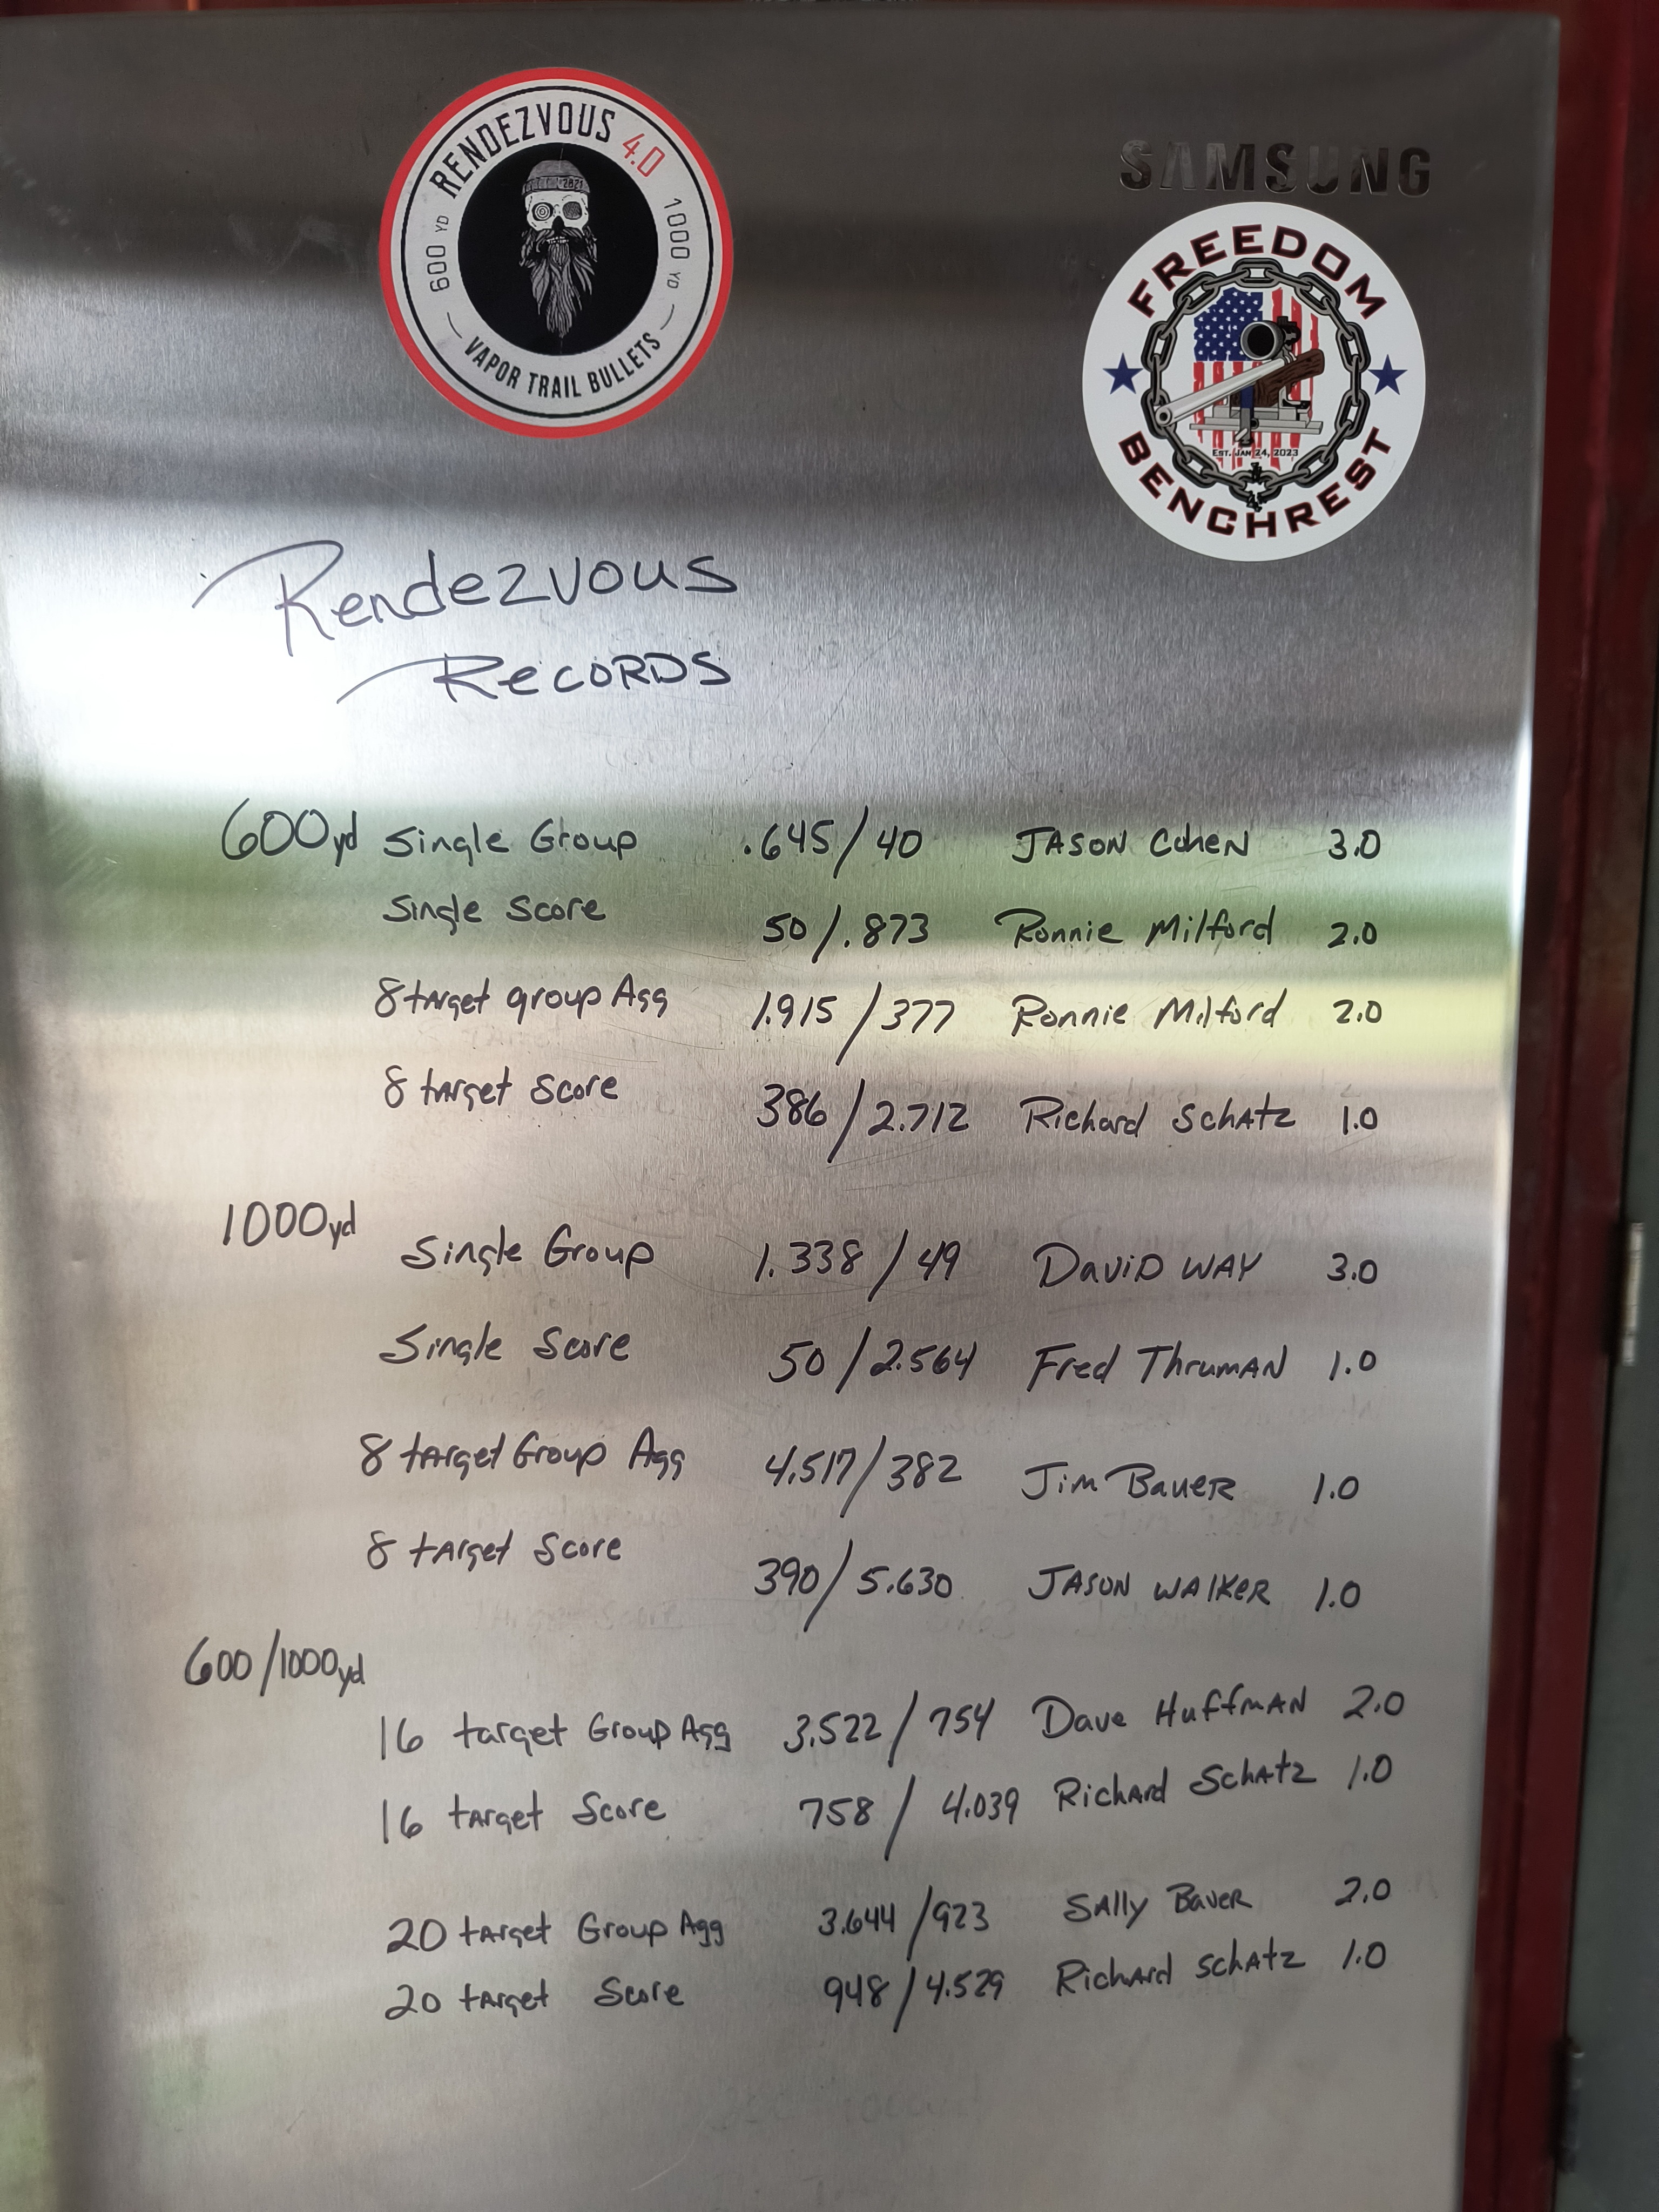 RENDEZVOUS 4.0
600 YD
1000 YD
VAPOR TRAIL BULLETS
2821
SAMSUNG
FREEDOM
EST. JAN 24, 2023
BENCHREST
Rendezvous
Records
600yd Single Group .645/40 Jason Cohen 3.0
Single Score 50/.873 Ronnie Milford 2.0
8 target group Agg 1.915/377 Ronnie Milford 2.0
8 target Score 386/2.712 Richard Schatz 1.0
1000yd
Single Group 1.338/49 David Way 3.0
Single Score 50/2.564 Fred Thruman 1.0
8 target Group Agg 4.517/382 Jim Bauer 1.0
8 target Score 390/5.630 Jason Walker 1.0
600/1000yd
16 target Group Agg 3.522/754 Dave Huffman 2.0
16 target Score 758/4.039 Richard Schatz 1.0
20 target Group Agg 3.644/923 Sally Bauer 2.0
20 target Score 948/4.529 Richard Schatz 1.0